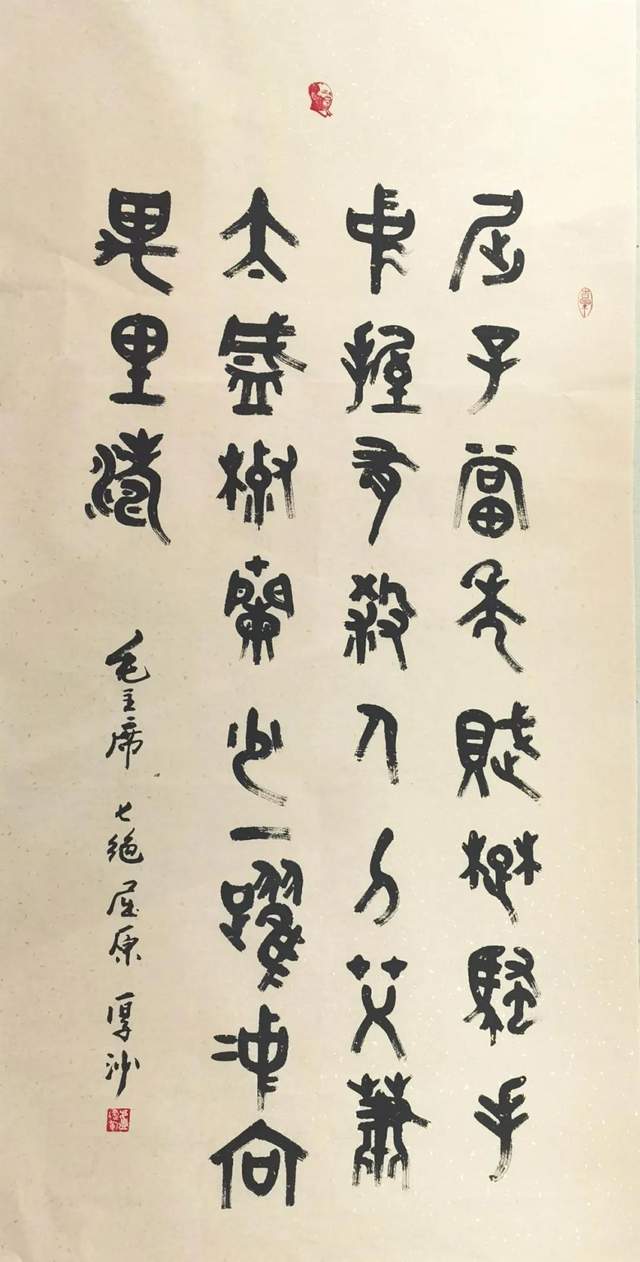 屈子當年賦楚騷手
中握有殺人刀艾蕭
太盛椒蘭少一躍沖向
萬里濤
毛主席 七絕 屈原 厚沙